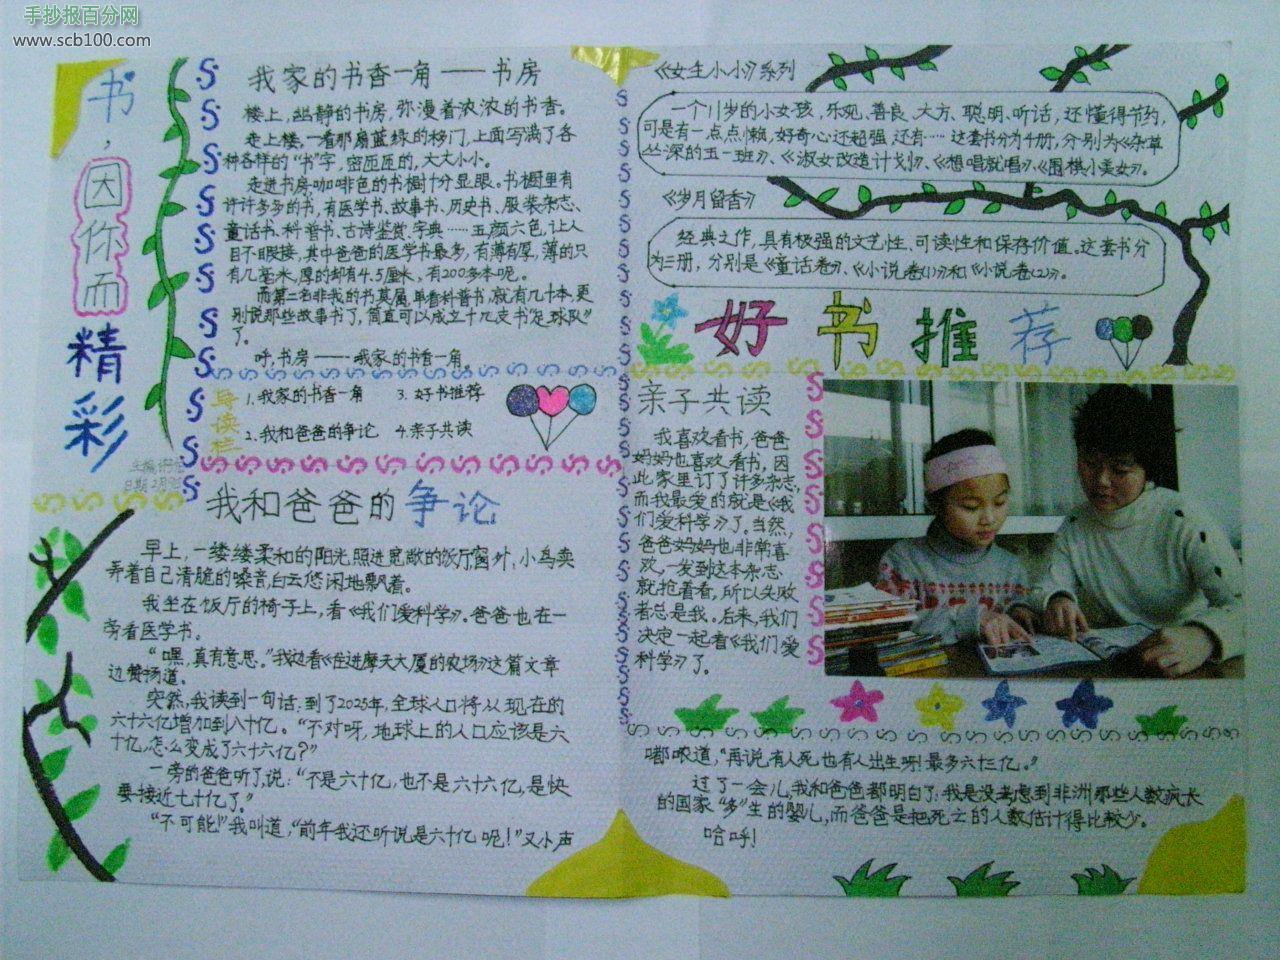 手抄报百分网
www.scb100.com
书，
因你而
精彩
我家的书香一角——书房
楼上，幽静的书房，弥漫着浓浓的书香。
走上楼，一看那扇蓝绿的移门，上面写满了各
种各样的“书”字，密密匝匝的，大大小小。
走进书房，咖啡色的书橱十分显眼。书橱里有
许许多多的书，有医学书、故事书、历史书、服装杂志、
童话书、科普书、古诗鉴赏、字典……五颜六色，让人
目不暇接，其中爸爸的医学书最多，有薄有厚，薄的只
有几毫米，厚的却有4.5厘米，有200多本呢。
而第二名非我的书莫属，单看科普书，就有几十本，更
别说那些故事书了，简直可以成立十几支书“足球队”
了。
呼，书房——我家的书香一角。
导读栏
1.我家的书香一角 3.好书推荐
2.我和爸爸的争论 4.亲子共读
我和爸爸的争论
早上，一缕缕柔和的阳光照进宽敞的饭厅，窗外，小鸟卖
弄着自己清脆的嗓音，白云悠闲地飘着。
我坐在饭厅的椅子上，看《我们爱科学》。爸爸也在一
旁看医学书。
“嘿，真有意思。”我边看《在进摩天大厦的农场》这篇文章
边赞扬道。
突然，我读到一句话：到了2025年，全球人口将从现在的
六十六亿增加到八十亿。“不对呀，地球上的人口应该是六
十亿，怎么变成了六十六亿？”
一旁的爸爸听了，说：“不是六十亿，也不是六十六亿，是快
要接近七十亿了。”
“不可能！”我叫道，“前年我还听说是六十亿呢！”又小声
《女生小小》系列
一个11岁的小女孩，乐观、善良、大方、聪明、听话，还懂得节约，
可是有一点点懒，好奇心还超强，还有……这套书分为4册，分别为《杂草
丛深的五一班》、《淑女改造计划》、《想唱就唱》、《围棋小美女》。
《岁月留香》
经典之作，具有极强的文艺性、可读性和保存价值。这套书分
为三册，分别是《童话卷》、《小说卷(1)》和《小说卷(2)》。
好书推荐
亲子共读
我喜欢看书，爸爸
妈妈也喜欢看书，因
此家里订了许多杂志，
而我最爱的就是《我
们爱科学》了，当然，
爸爸妈妈也非常喜
欢，一发到这本杂志
就抢着看，所以失败
者总是我。后来，我们
决定一起看《我们爱
科学》了。
嘟哝道，“再说，有人死也有人出生呀！最多六十三亿。”
过了一会儿，我和爸爸都明白了：我是没考虑到非洲那些人数疯长
的国家“多”生的婴儿，而爸爸是把死亡的人数估计得比较少。
哈呼！